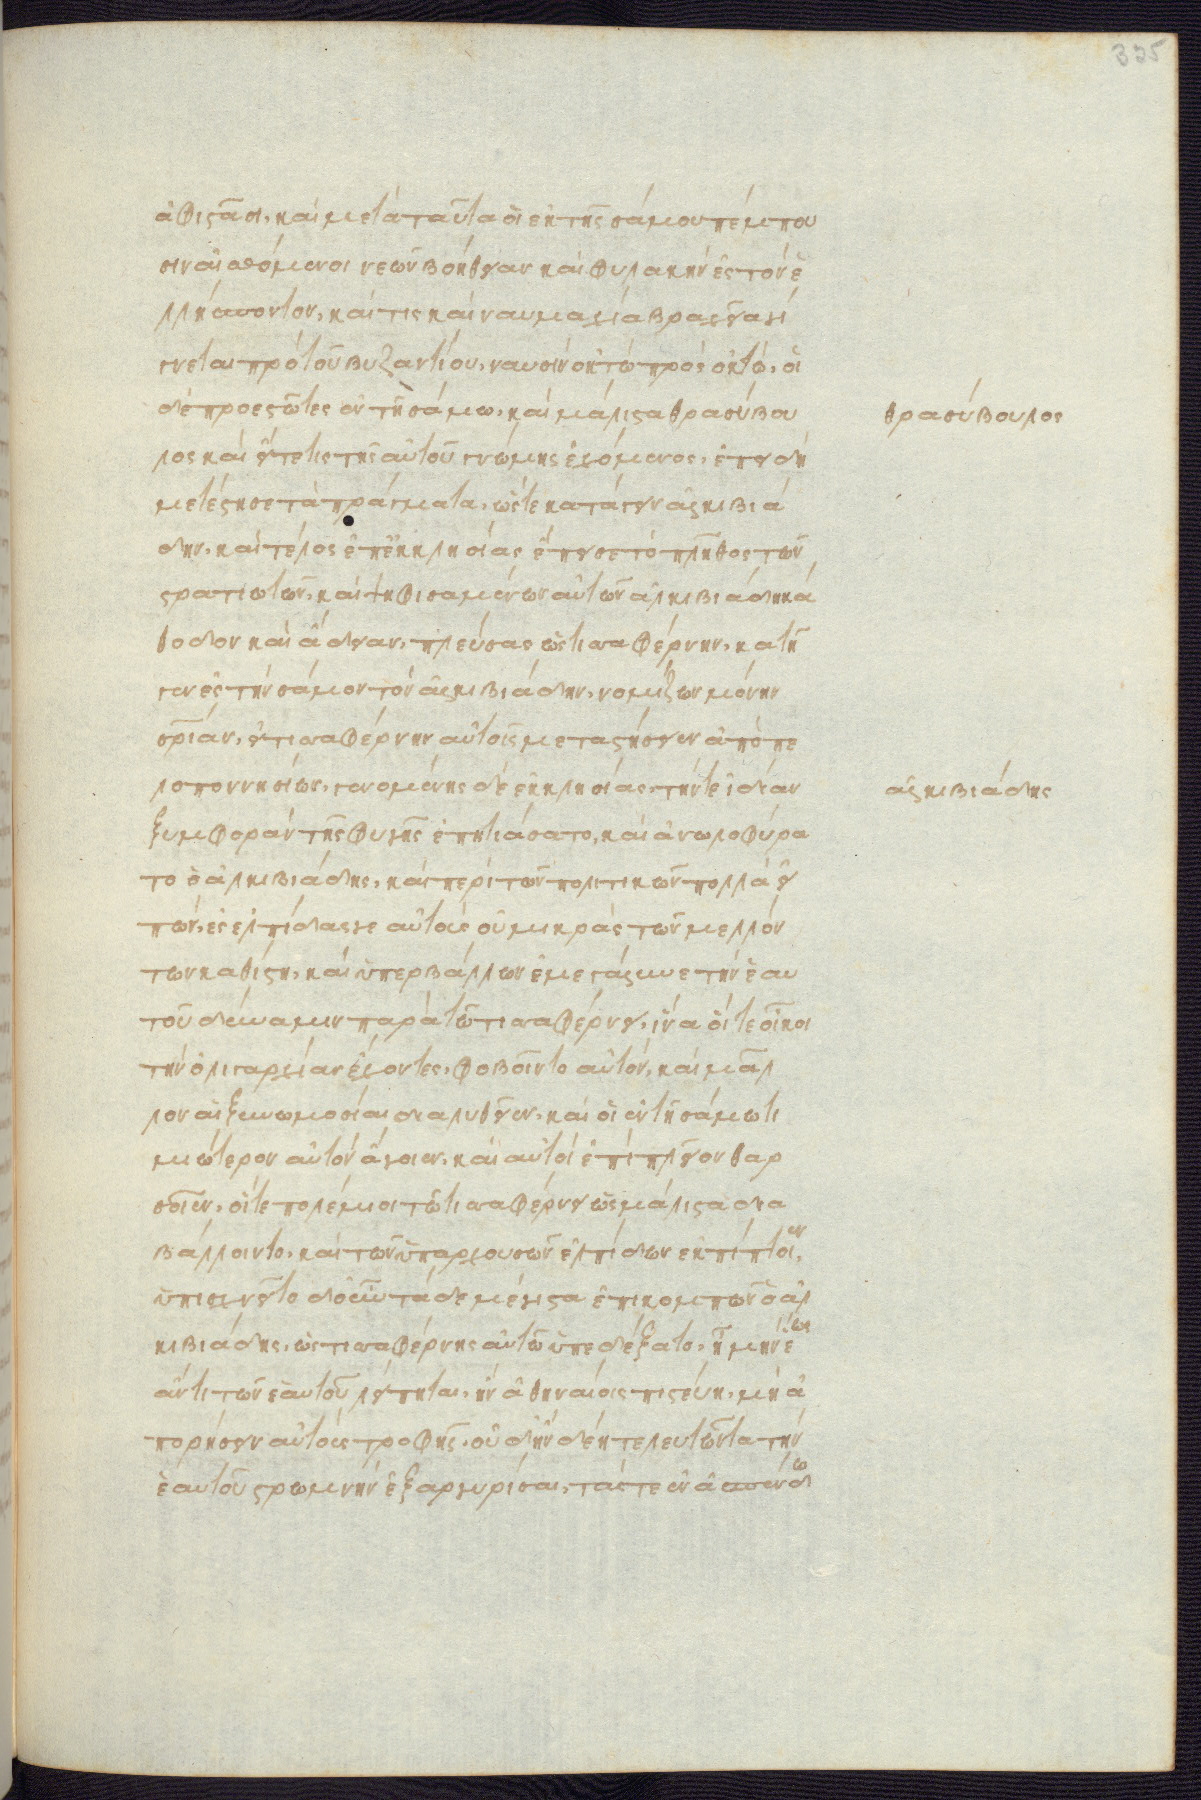 325
ἀφιστᾶσι. καὶ μετὰ ταῦτα οἱ ἐκ τῆς σάμου πέμπου
σιν αἰσθόμενοι νεῶν βοήθειαν καὶ φυλακὴν ἐς τὸν ἑ
λλήσποντον. καί τις καὶ ναυμαχία βραχεῖα γί
γνεται πρὸ τοῦ βυζαντίου, ναυσὶν ὀκτὼ πρὸς ὀκτώ. οἱ
δὲ προεστῶτες ἐν τῇ σάμω, καὶ μάλιστα θρασύβου
λος καὶ εἴτε τις τῆς αὐτοῦ γνώμης ἐχόμενος, ἐπειδὴ
μετέστησε τὰ πράγματα, ὥστε κατάγειν ἀλκιβιά
δην, καὶ τέλος ἐπ' ἐκκλησίας ἔπεισε τὸ πλῆθος τῶν
στρατιωτῶν. καὶ ψηφισαμένων αὐτῶν ἀλκιβιάδη κά
θοδον καὶ ἄδειαν, πλεύσας ὡς τισσαφέρνην, κατῆ
γεν ἐς τὴν σάμον τὸν ἀλκιβιάδην, νομίζων μόνην
σωτηρίαν, εἰ τισσαφέρνην αὐτοῖς μεταστήσειεν ἀπὸ πε
λοποννησίων. γενομένης δὲ ἐκκλησίας τήν τε ἰδίαν
ξυμφορὰν τῆς φυγῆς ἐπητιάσατο, καὶ ἀνωλοφύρα
το ὁ ἀλκιβιάδης. καὶ περὶ τῶν πολιτικῶν πολλὰ εἰ
πών, ἐς ἐλπίδας γε αὐτοὺς οὐ μικρὰς τῶν μελλόν
των καθίστη. καὶ ὑπερβάλλων ἐμεγάλυνε τὴν ἑαυ
τοῦ δύναμιν παρὰ τῶ τισσαφέρνει, ἵνα οἵ τε οἴκοι
τὴν ὀλιγαρχίαν ἔχοντες, φοβοῖντο αὐτόν, καὶ μᾶλ
λον αἱ ξυνωμοσίαι διαλυθεῖεν. καὶ οἱ ἐν τῇ σάμω τι
μιώτερον αὐτὸν ἄγοιεν, καὶ αὐτοὶ ἐπὶ πλεῖον θαρ
σοῖεν. οἵ τε πολέμιοι τῶ τισσαφέρνει ὡς μάλιστα δια
βάλλοιντο, καὶ τῶν ὑπαρχουσῶν ἐλπίδων ἐκπίπτοιεν.
ὑπισχνεῖτο δ' οὖν τάδε μέγιστα ἐπικομπῶν ὁ ἀλ
κιβιάδης, ὡς τισσαφέρνης αὐτῶ ὑπεδέξατο, ἦ μὴν ἕως
ἄν τι τῶν ἑαυτοῦ λείπηται, ἢν ἀθηναίοις πιστεύη, μὴ ἀ
πορήσειν αὐτοὺς τροφῆς. οὐδ' ἢν δέη τελευτῶντα τὴν
ἑαυτοῦ στρωμνὴν ἐξαργυρίσαι. τάς τε ἐν ἀσπένδω
θρασύβουλος
ἀλκιβιάδης